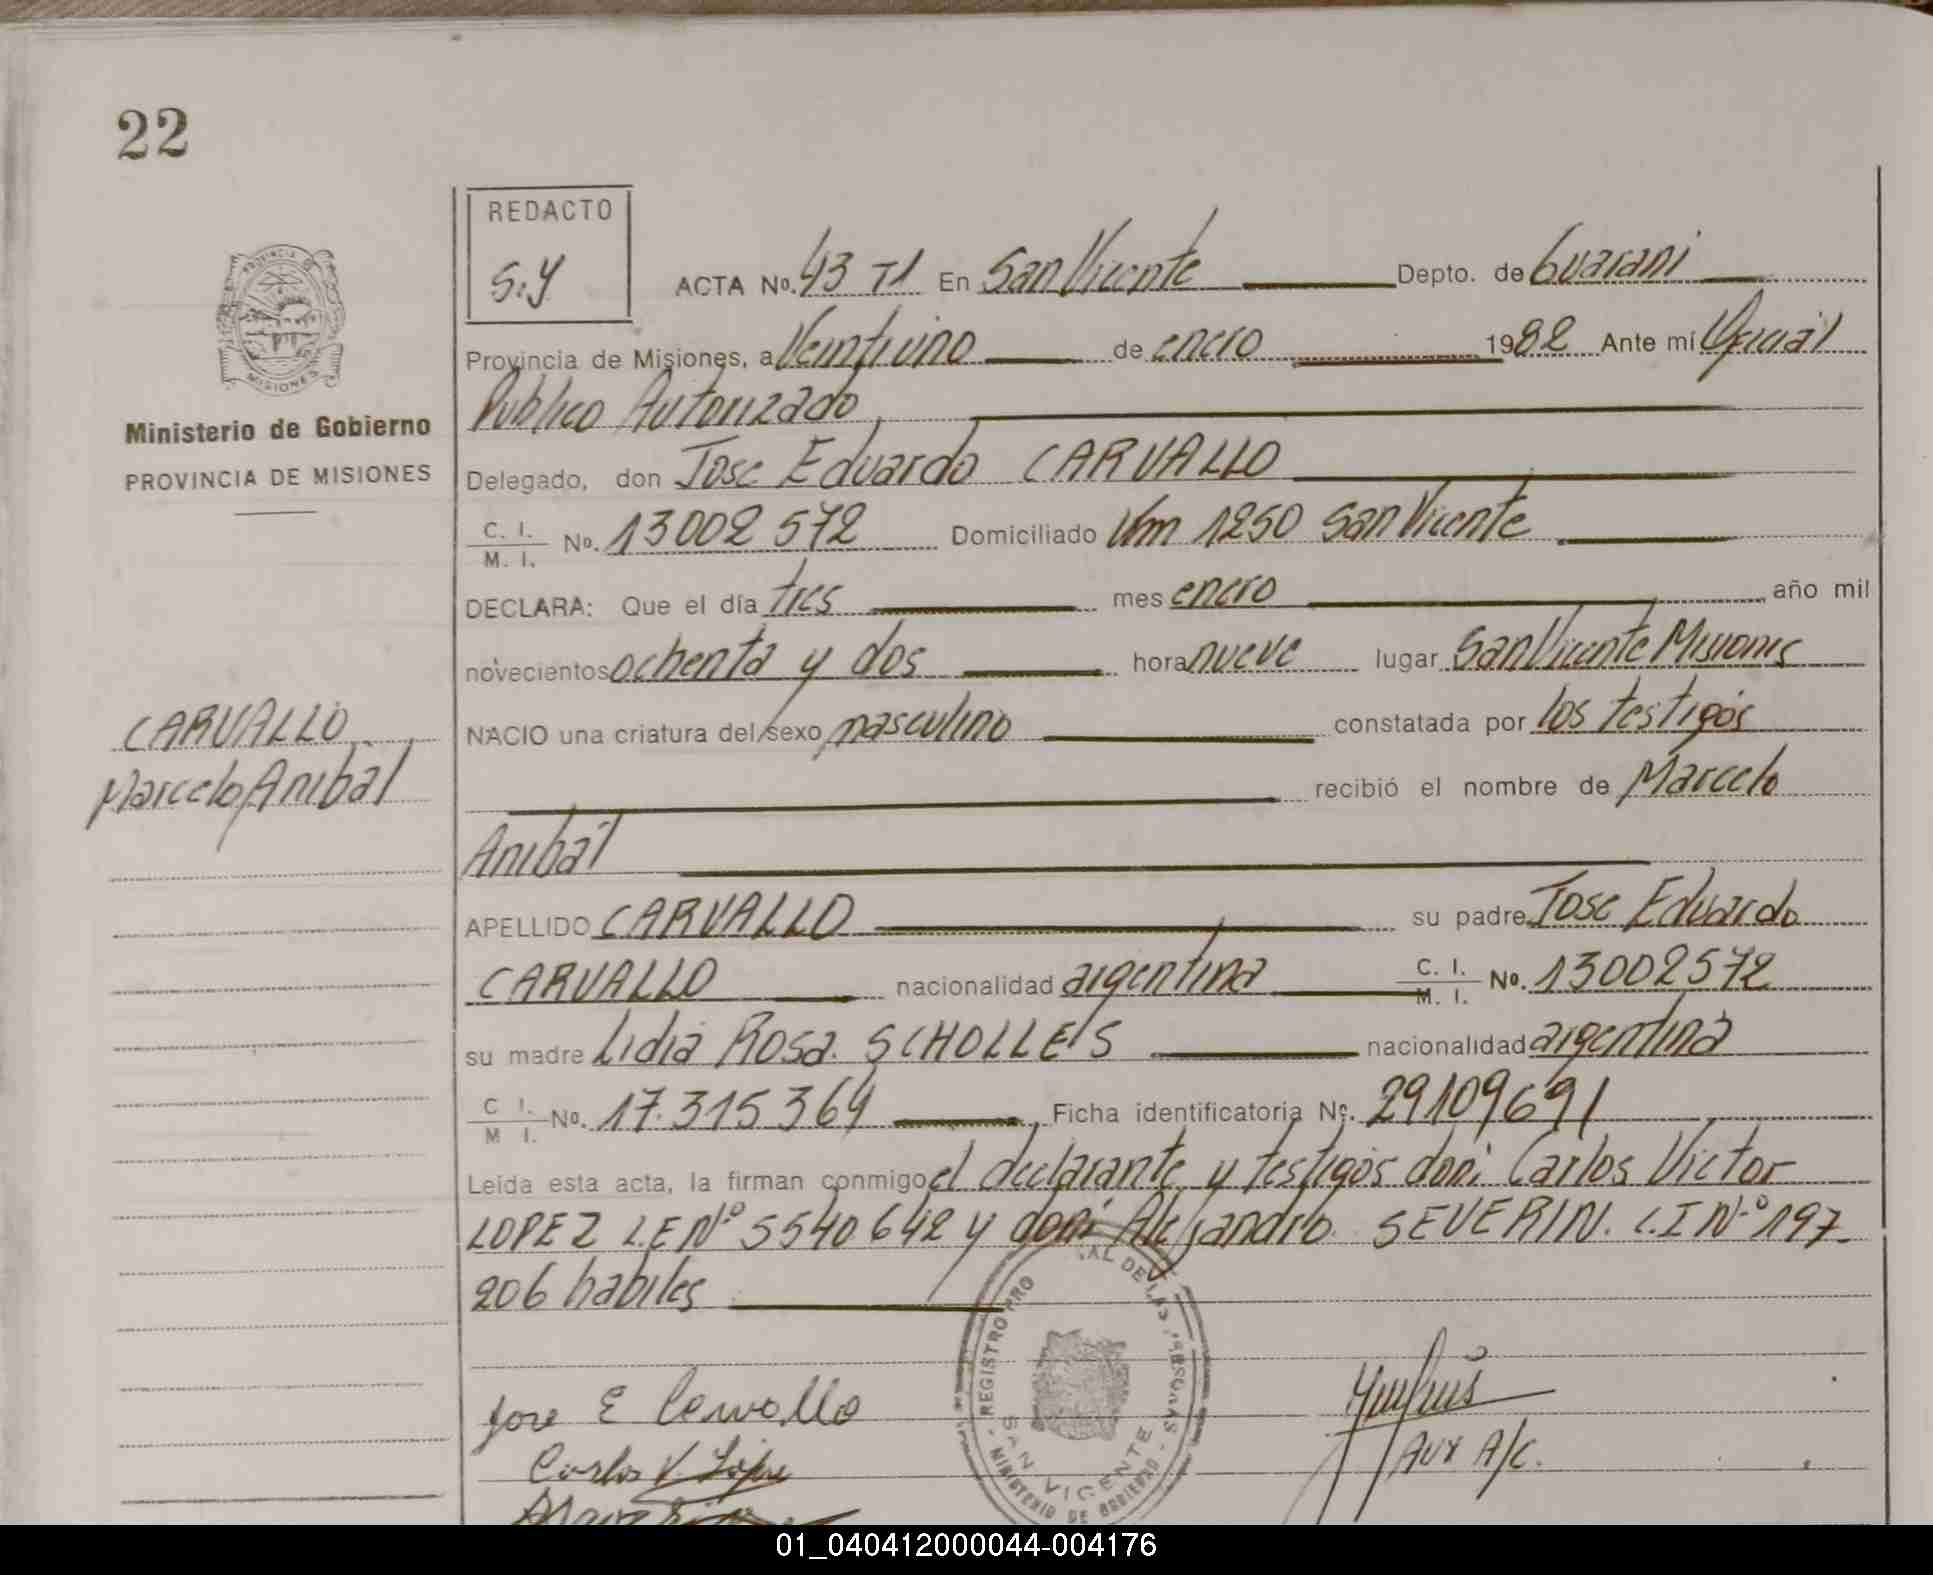 22
REDACTO
S.Y
ACTA No. 43 T1 En San Vicente Depto. de Guarani
Provincia de Misiones, a Veintiuno de enero 1982 Ante mí Oficial
Publico Autorizado
Delegado, don Jose Eduardo CARVALLO
C. I. M. I. No. 13002 572 Domiciliado Km 1250 San Vicente
DECLARA: Que el día tres mes enero año mil
novecientos ochenta y dos hora nueve lugar San Vicente Misiones
NACIO una criatura del sexo masculino constatada por los testigos
recibió el nombre de Marcelo
Anibal
APELLIDO CARVALLO su padre Jose Eduardo
CARVALLO nacionalidad argentina C. I. M. I. No. 13002572
su madre Lidia Rosa SCHOLLES nacionalidad argentina
C I. M I. No. 17.315364 Ficha identificatoria Nº. 29109691
Leída esta acta, la firman conmigo el declarante y testigos don: Carlos Victor
LOPEZ L.E Nº 5540642 y don: Alejandro SEVERIN. C.I Nº 197-
206 habiles
PROVINCIA DE
MISIONES
Ministerio de Gobierno
PROVINCIA DE MISIONES
CARVALLO
Marcelo Anibal
Jose E Carvallo
Carlos V. López
REGISTRO PRO AL DE LAS PERSONAS
SAN VICENTE
MINISTERIO DE GOBIERNO
Aux A/C.
01_040412000044-004176